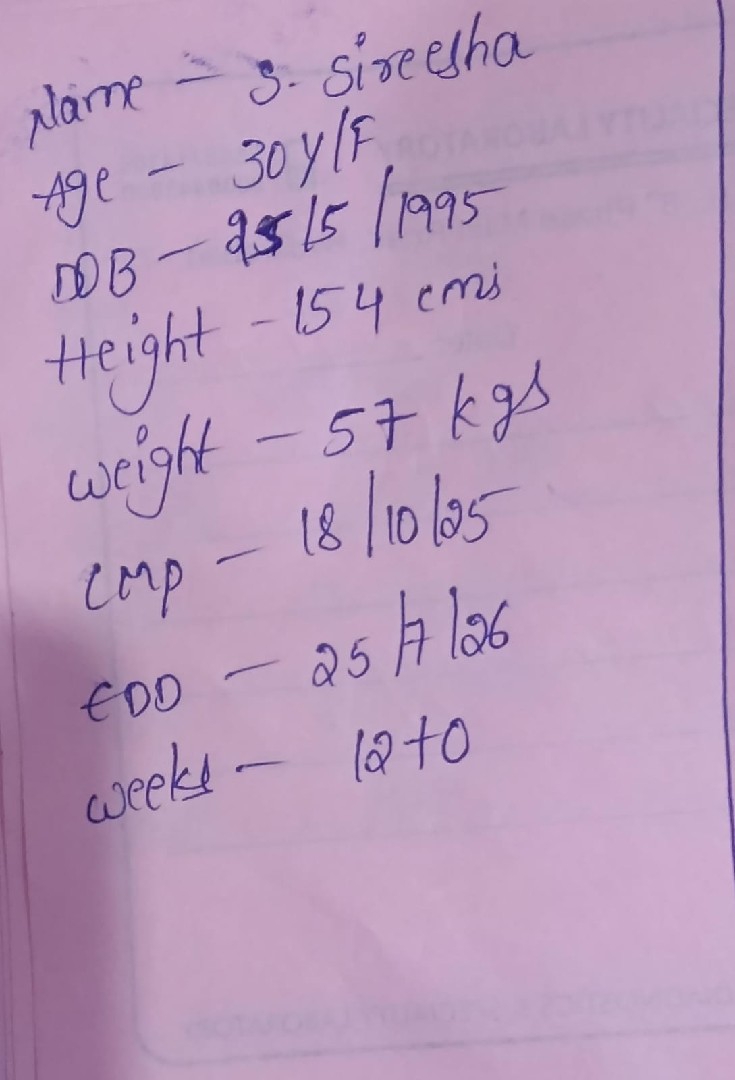 Name - S. Sireesha
Age - 30Y/F
DOB - 25/5/1995
Height - 154 cms
weight - 57 kgs
LMP - 18/10/25
EDD - 25/7/26
weeks - 12+0